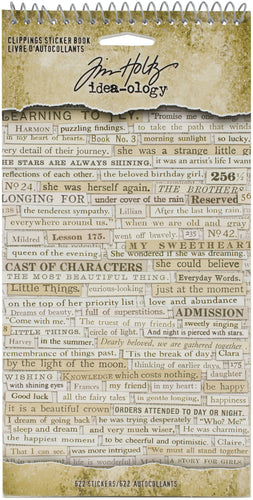 CLIPPINGS STICKER BOOK
LIVRE D'AUTOCOLLANTS
Tim Holtz
idea-ology
LEARNING TO FLY. Promise me
HARMON puzzling findings. to take the path that winds
in my heart of hearts. Book No. 3. morning sunlight so lovely
every detail of their journey. she was a strange little
THE STARS ARE ALWAYS SHINING. it was an artist's life I want
reflections of each other. the beloved birthday girl, 256½
No 24. she was herself again. THE BROTHERS
LONGING FOR under cover of the rain Reserved
the tenderest sympathy. Lillian After the long rain,
everywhere around us. when we are old
Mildred Lesson 175. went off bravely. 235 No 42.
MY SWEETHEART
queen of the evening. She wondered if she was dreaming.
CAST OF CHARACTERS she could believe
THE MOST BEAUTIFUL THING. Everyday Words.
Little Things. curious-looking just at the moment
on the top of her priority list love and abundance
Dreams of beauty, full of superstitions. ADMISSION
Come with me," The trust of my friends sweetly singing
LITTLE THINGS. circle of light. And night is pierced with stars.
Harvey in the summer. Dearly beloved, we are gathered together
remembrance of things past. 'Tis the break of day. Clara
by the light of the moon. thinking of earlier days 875
WISHING KNOWLEDGE which costs nothing, daughter
with shining eyes Frances my friend in my heart: be happy
Good luck all the fairy tales, stepping into kindness
it is a beautiful crown ORDERS ATTENDED TO DAY OR NIGHT.
I dream of going back he was trying desperately "Who? Me?"
sleep and dream and very much wiser. He was charming.
the happiest moment to be cheerful and optimistic. Claire.
That I can see. was more intrigued "We must try for girls
622 STICKERS/622 AUTOCOLLANTS